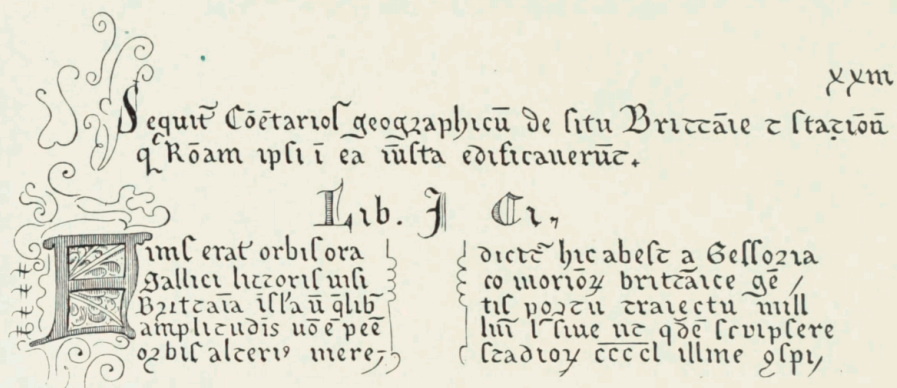 xxm
Sequit̄ Cōētariol geographicū de situ Brittāie ⁊ statiōū
q̄ Rōam ipsi ī ea īusta edificauerūt.
Lib. I Ci,
Fims erat orbis ora
Gallici littoris nisi
Brittaīa īsl'a ū q̄lib̄
amplitudīs nōē peē
orbis alteriꝰ mere,
dictē hic abest a Gessoria
co morioꝝ brittāice gē /
tis portū traiectu mill
lm̄ l siue ut qd̄e scripsere
stadioꝝ c̄c̄c̄c̄l illme ꝯspi,